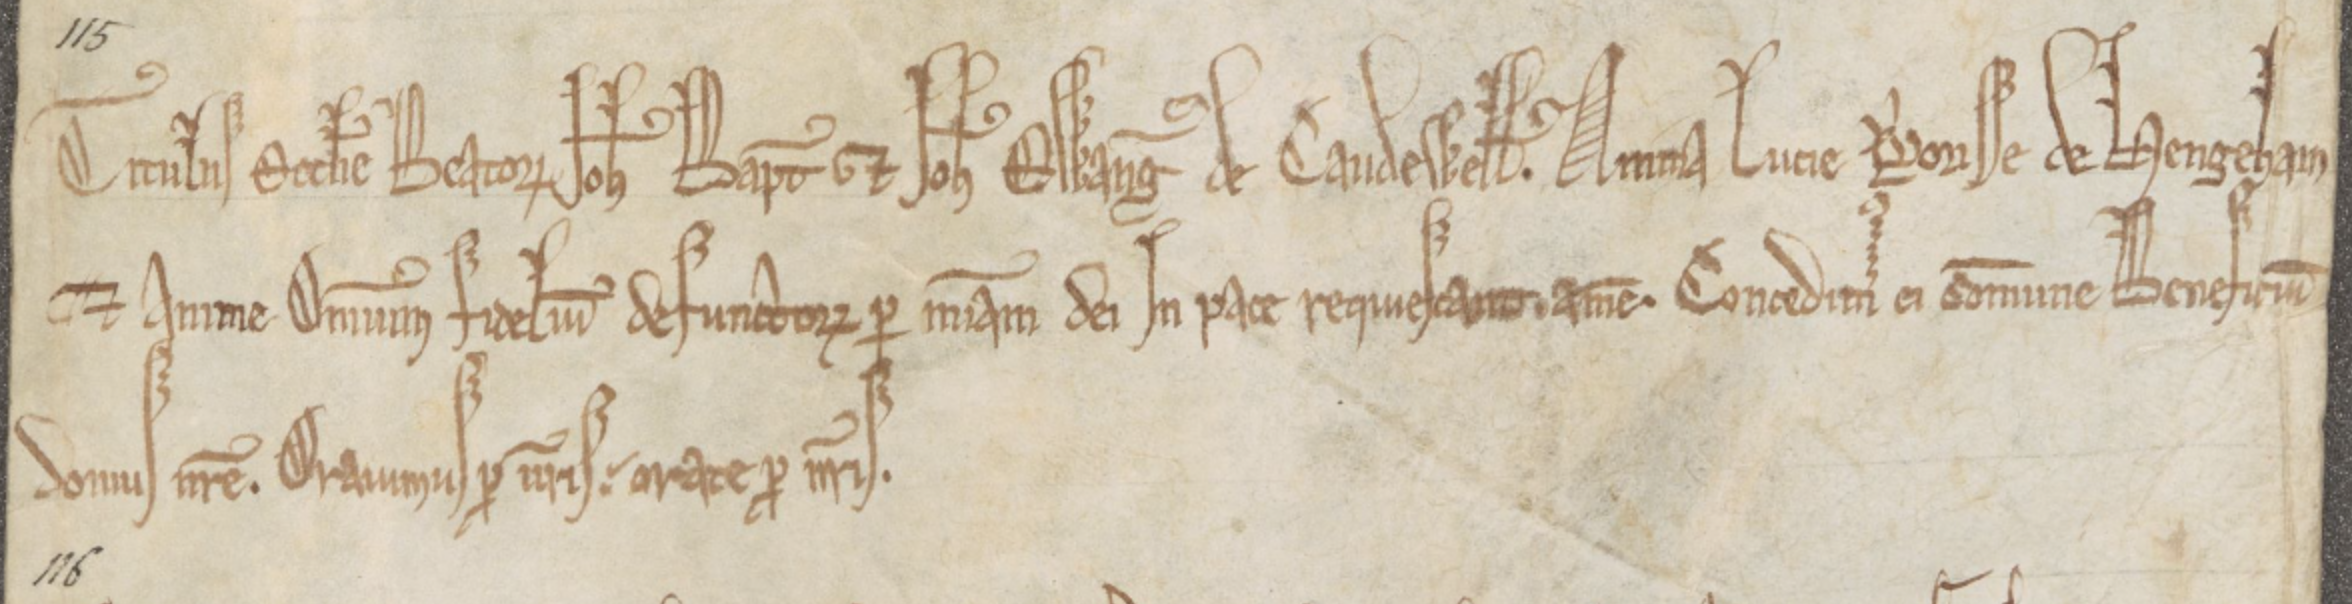 115
Titulus Eccl̄ie Beatoꝝ Joħ Bapt̄ Et Joħ Ewanḡ de Caudewell̄. Anima Lucie Priorisse de Hengeham
Et Anime Om̄ium fideliū defunctoꝝ ꝑ mīam dei In pace requiescant. am̄e. Concedim᷒ ei com̄une Beneficiū
domus nr̄e. Orauimus ꝓ ur̄is: orate ꝓ nr̄is.
116